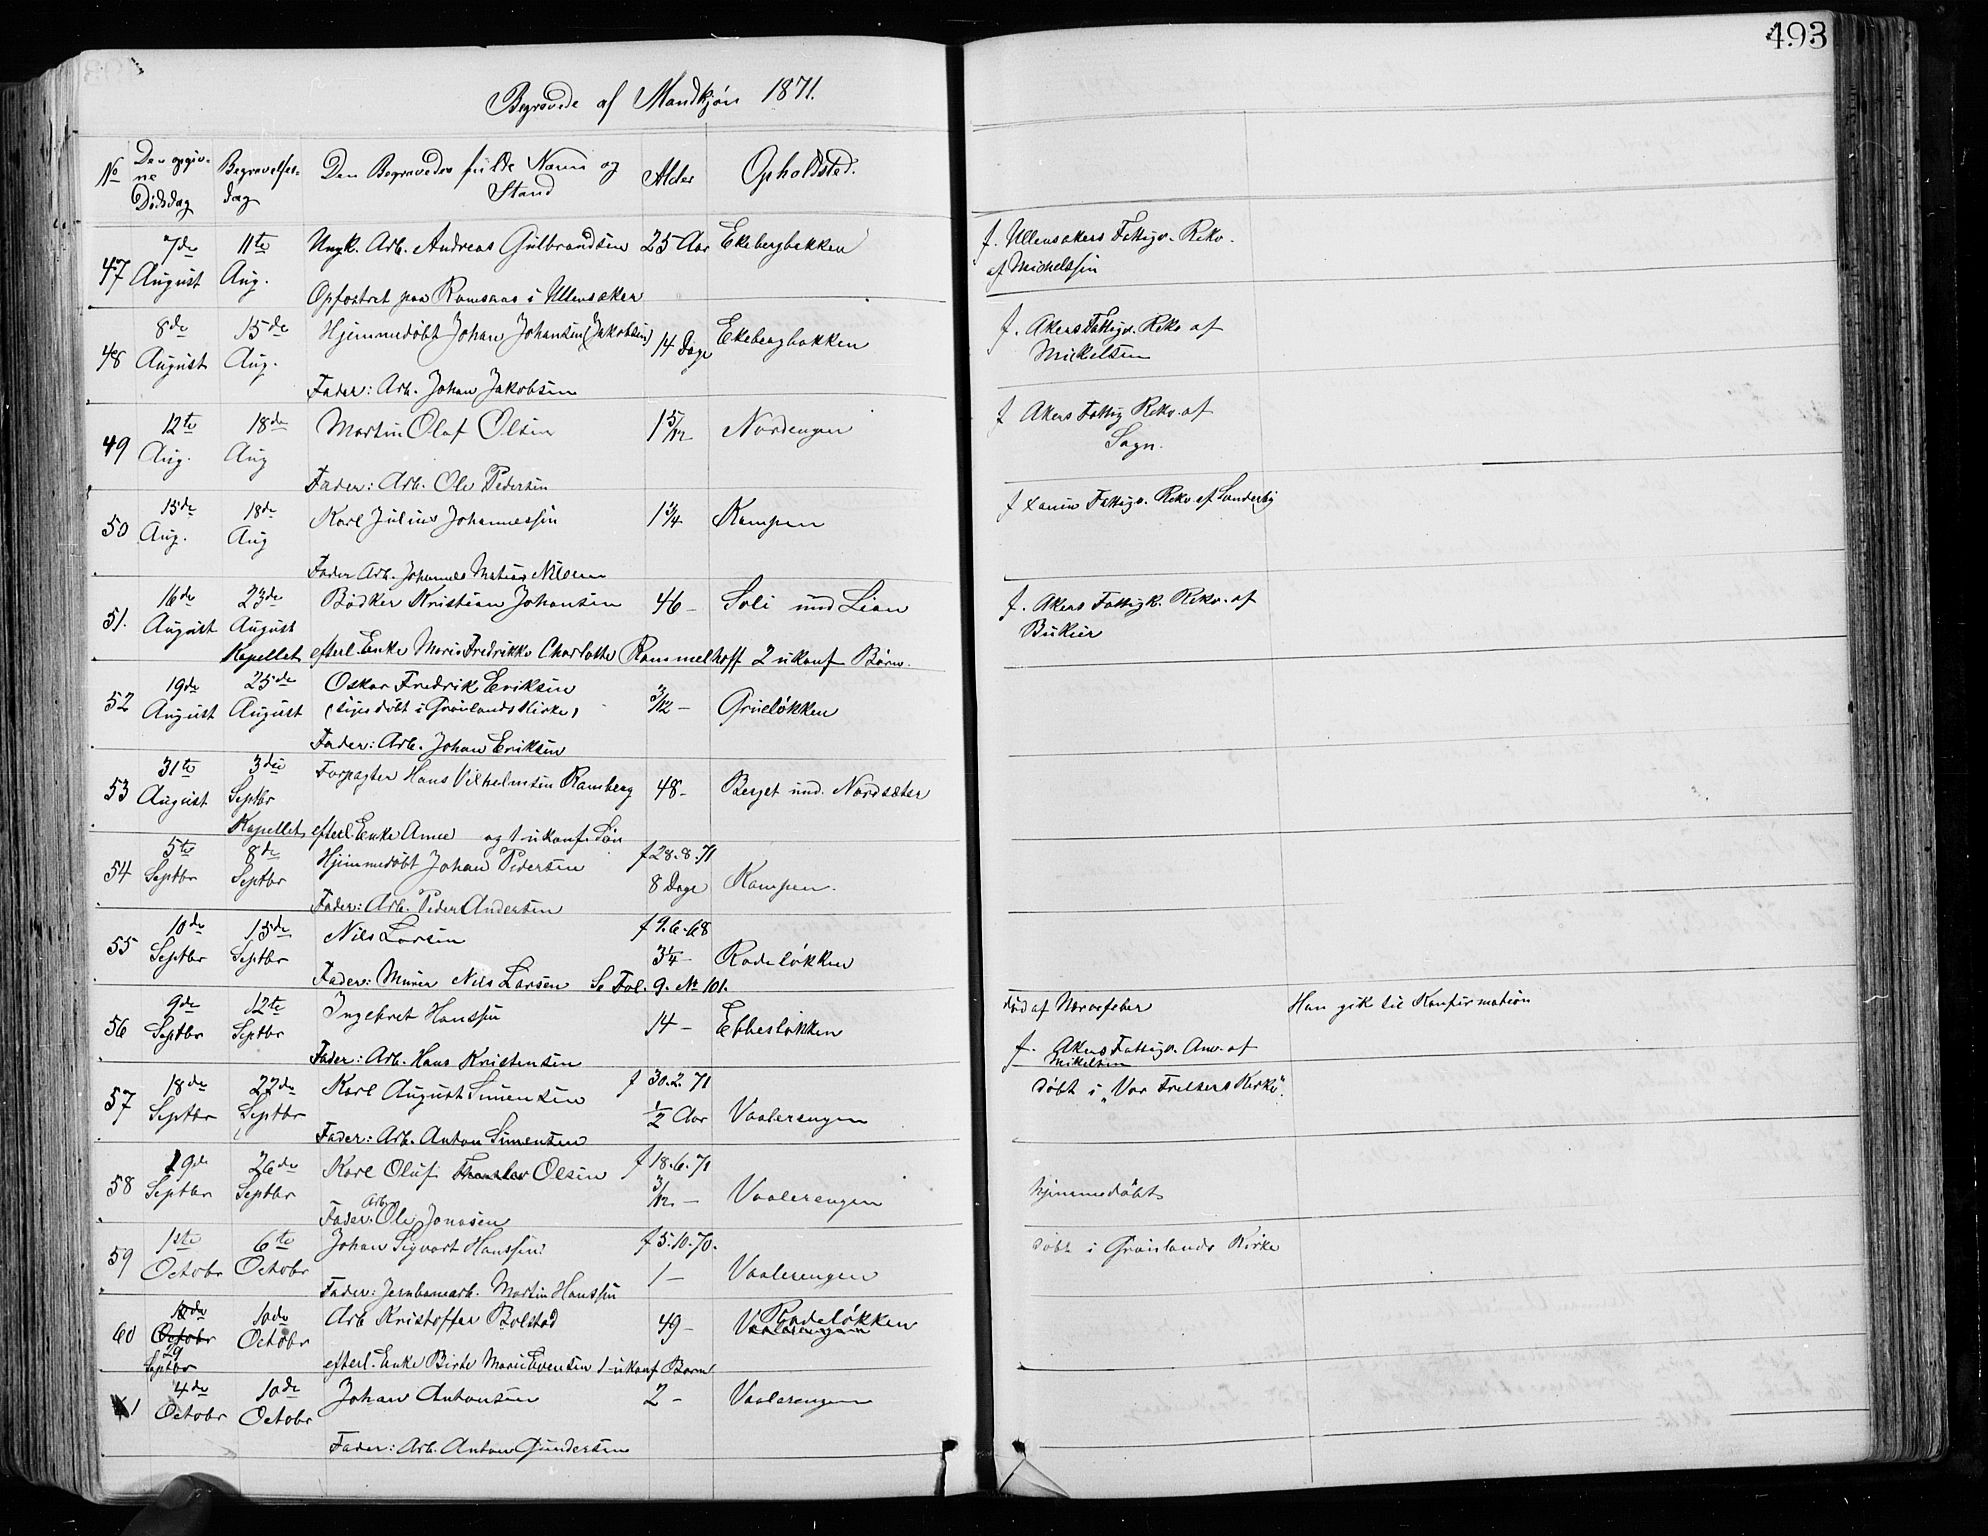 493
Begravede af Mandkjøn 1871.
No Den opgivne Dødsdag Begravelsesdag Den Begravedes fulde Navn og Stand Alder Opholdsted.
47 7de August 11te Aug. Ungk. Arb. Andreas Gulbrandsen 25 Aar Ekebergbakken f. Ullensakers Fattigv. Rekv. af Michelsen
Opfostret paa Ramsaas i Ullensaker
48 8de August 15de Aug. Hjemmedøbt Johan Johansen (Jakobsen) 14 Dage Ekebergbakken f. Akers Fattigv. Rekv af Mickelsen
Fader: Arb. Johan Jakobsen
49 12te Aug. 18de Aug Martin Olaf Olsen 1 5/12 Nordengen f Akers Fattig Rekv. af Sogn.
Fader: Arb. Ole Pedersen
50 15de Aug. 18de Aug Karl Julius Johannessen 1 3/4 Kampen f Fattigv. Rekv. af Sonderby
Fader Arb. Johannes Matias Nilsen
51. 16de August 23de August Bødker Kristian Johansen 46 – Soli und Lian f. Akers Fattigk. Rekv. af
Kapellet efterl. Enke Marie Fredrikke Charlotte Rommelhoff 2 ukonf Børn.
52 19de August 25de August Oskar Fredrik Eriksen 3/12 – Grüeløkken
(siges døbt i Grønlands Kirke)
Fader: Arb. Johan Eriksen
53 31te August 3die Septbr Forpagter Hans Vilhelmsen Ramberg 48 – Berget und. Nordsæter
Kapellet efterl. Enke Anne og 1 ukonf. Søn
54 5te Septbr 8de Septbr Hjemmedøbt Johan Pedersen f 28.8.71 8 Dage Kampen.
Fader: Arb. Peder Andersen
55 10de Septbr 15de Septbr Nils Larsen f 9.6.68 3 1/4 – Rodeløkken
Fader: Murer Nils Larsen Se Fol. 9. No 101.
56 9de Septbr 12te Septbr Ingebret Hanssen 14 – Ebbesløkken død af Nervefeber Han gik til Konfirmation
Fader: Arb. Hans Kristensen f. Akers Fattigv. Anv. af Mikelsen
57 18de Septbr 22de Septbr Karl August Simensen f 30.2.71 1/2 Aar Vaalerengen døbt i "Vor Frelsers Kirke".
Fader: Arb. Anton Simensen
58 19de Septbr 26de Septbr Karl Oluf Olsen f 18.6.71 3/12 – Vaalerengen hjemmedøbt
Fader: Arb. Ole Jonasen
59 1ste Octobr 6te Octobr Johan Sigvart Hanssen f 5.10.70. 1 – Vaalerengen døbt i Grønlands Kirke
Fader: Jernbanearb. Martin Hanssen
60 Octobr 29 Septbr 10de Octobr Arb Kristoffer Bolstad 49 – Vaalerengen Rodeløkken
efterl. Enke Birte Marie Evensen 1 ukonf Barn
61 4de Octobr 10de Octobr Johan Antonsen 2 – Vaalerengen
Fader: Arb. Anton Gundersen